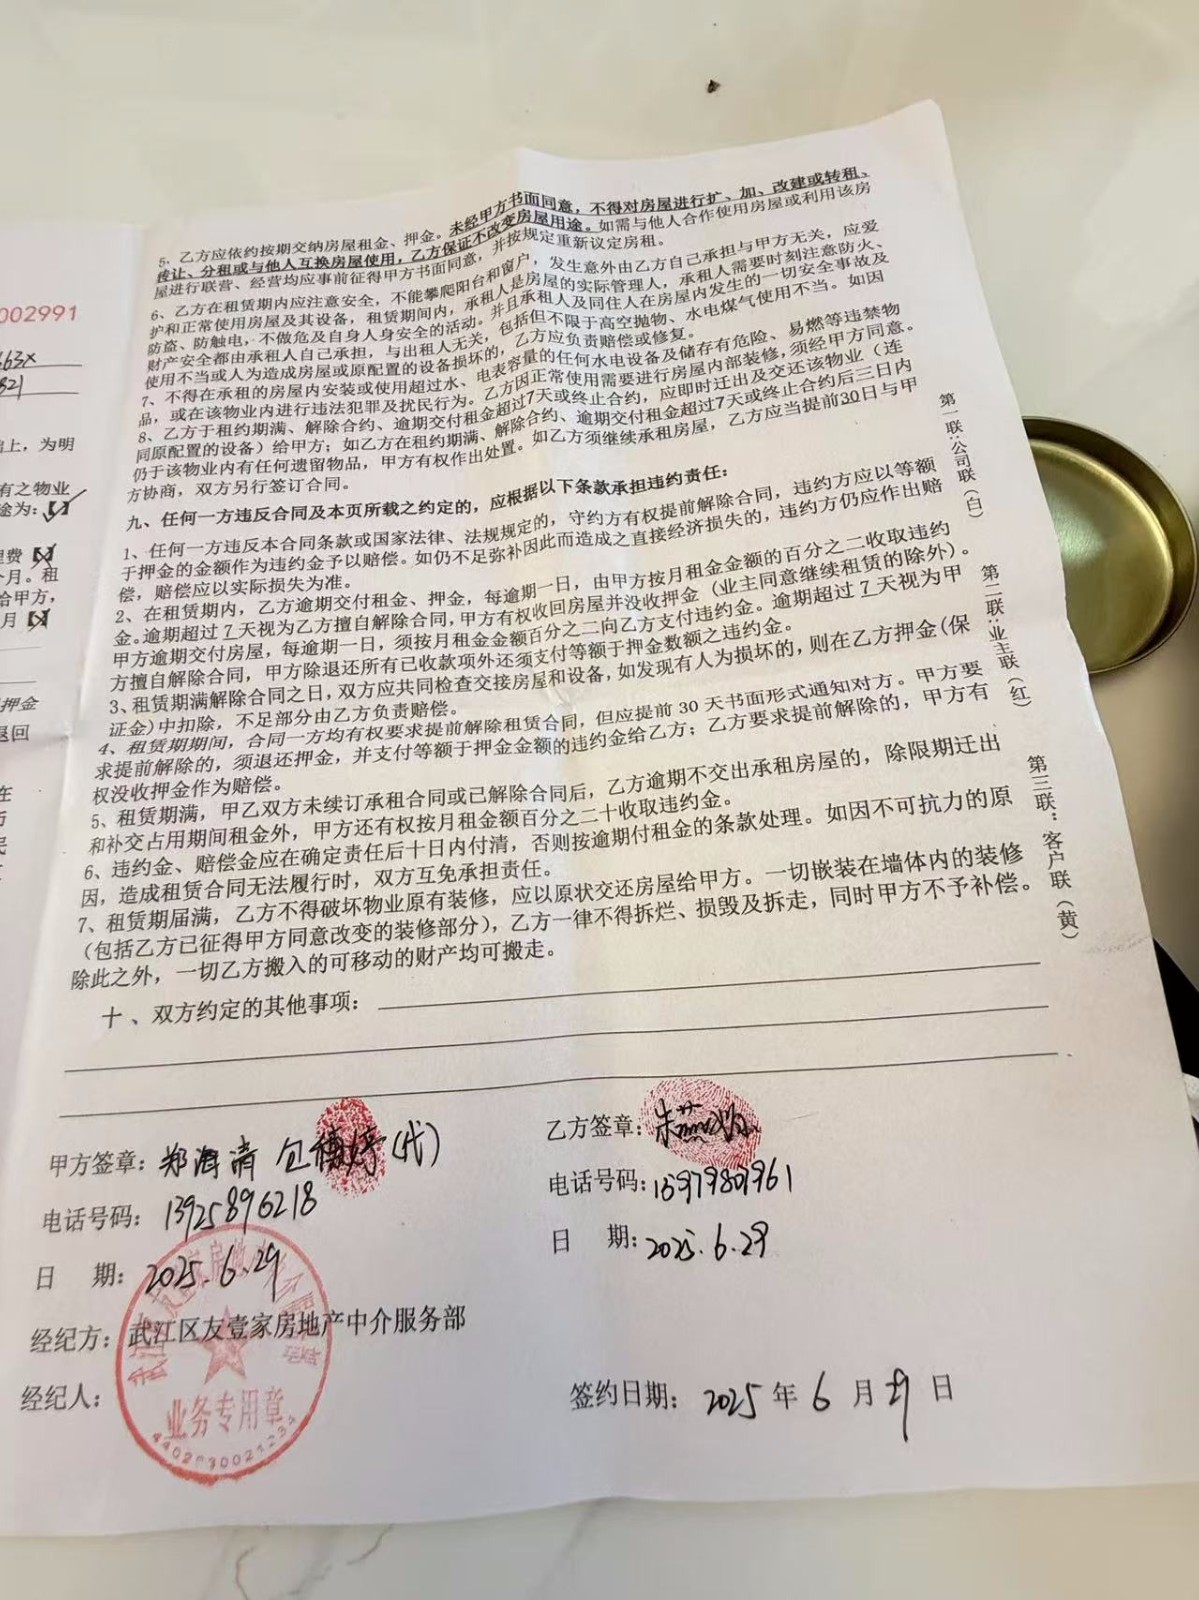 002991
663X
821
上，为明
有之物业
途为：【✓】
理费【✓】
个月。租
给甲方，
月【✓】
押金
退回
在
5、乙方应依约按期交纳房屋租金、押金。未经甲方书面同意，不得对房屋进行扩、加、改建或转租、
转让、分租或与他人互换房屋使用，乙方保证不改变房屋用途。如需与他人合作使用房屋或利用该房
屋进行联营、经营均应事前征得甲方书面同意，并按规定重新议定房租。
6、乙方在租赁期内应注意安全，不能攀爬阳台和窗户，发生意外由乙方自己承担与甲方无关，应爱
护和正常使用房屋及其设备，租赁期间内，承租人是房屋的实际管理人，承租人需要时刻注意防火、
防盗、防触电，不做危及自身人身安全的活动。并且承租人及同住人在房屋内发生的一切安全事故及
财产安全都由承租人自己承担，与出租人无关，包括但不限于高空抛物、水电煤气使用不当。如因
使用不当或人为造成房屋或原配置的设备损坏的，乙方应负责赔偿或修复。
7、不得在承租的房屋内安装或使用超过水、电表容量的任何水电设备及储存有危险、易燃等违禁物
品，或在该物业内进行违法犯罪及扰民行为。乙方因正常使用需要进行房屋内部装修，须经甲方同意。
8、乙方于租约期满、解除合约、逾期交付租金超过7天或终止合约，应即时迁出及交还该物业（连
同原配置的设备）给甲方；如乙方在租约期满、解除合约、逾期交付租金超过7天或终止合约后三日内
仍于该物业内有任何遗留物品，甲方有权作出处置。如乙方须继续承租房屋，乙方应当提前30日与甲
方协商，双方另行签订合同。
九、任何一方违反合同及本页所载之约定的，应根据以下条款承担违约责任：
1、任何一方违反本合同条款或国家法律、法规规定的，守约方有权提前解除合同，违约方应以等额
于押金的金额作为违约金予以赔偿。如仍不足弥补因此而造成之直接经济损失的，违约方仍应作出赔
偿，赔偿应以实际损失为准。
2、在租赁期内，乙方逾期交付租金、押金，每逾期一日，由甲方按月租金金额的百分之二收取违约
金。逾期超过 7 天视为乙方擅自解除合同，甲方有权收回房屋并没收押金（业主同意继续租赁的除外）。
甲方逾期交付房屋，每逾期一日，须按月租金金额百分之二向乙方支付违约金。逾期超过 7 天视为甲
方擅自解除合同，甲方除退还所有已收款项外还须支付等额于押金数额之违约金。
3、租赁期满解除合同之日，双方应共同检查交接房屋和设备，如发现有人为损坏的，则在乙方押金(保
证金)中扣除，不足部分由乙方负责赔偿。
4、租赁期期间，合同一方均有权要求提前解除租赁合同，但应提前 30 天书面形式通知对方。甲方要
求提前解除的，须退还押金，并支付等额于押金金额的违约金给乙方；乙方要求提前解除的，甲方有
权没收押金作为赔偿。
5、租赁期满，甲乙双方未续订承租合同或已解除合同后，乙方逾期不交出承租房屋的，除限期迁出
和补交占用期间租金外，甲方还有权按月租金额百分之二十收取违约金。
6、违约金、赔偿金应在确定责任后十日内付清，否则按逾期付租金的条款处理。如因不可抗力的原
因，造成租赁合同无法履行时，双方互免承担责任。
7、租赁期届满，乙方不得破坏物业原有装修，应以原状交还房屋给甲方。一切嵌装在墙体内的装修
（包括乙方已征得甲方同意改变的装修部分），乙方一律不得拆烂、损毁及拆走，同时甲方不予补偿。
除此之外，一切乙方搬入的可移动的财产均可搬走。
十、双方约定的其他事项：
第一联：公司联（白）
第二联：业主联（红）
第三联：客户联（黄）
甲方签章：郑海清 (代)
电话号码：13925896218
日 期：2025.6.29
乙方签章：朱燕
电话号码：13979809961
日 期：2025.6.29
经纪方：武江区友壹家房地产中介服务部
经纪人：
签约日期：2025年6月29日
业务专用章